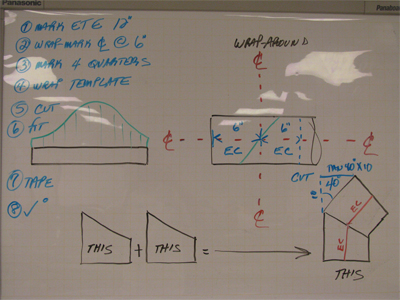 Panasonic
Panasonic
① MARK ETE 12"
② WRAP MARK ℄ @ 6"
③ MARK 4 QUARTERS
④ WRAP TEMPLATE
⑤ CUT
⑥ FIT
⑦ TAPE
⑧ ✓°
WRAP-AROUND
℄
6" 6"
℄ ℄
EC EC
℄
TAN 40° X 10
CUT 40°
EC
EC
THIS + THIS =
THIS